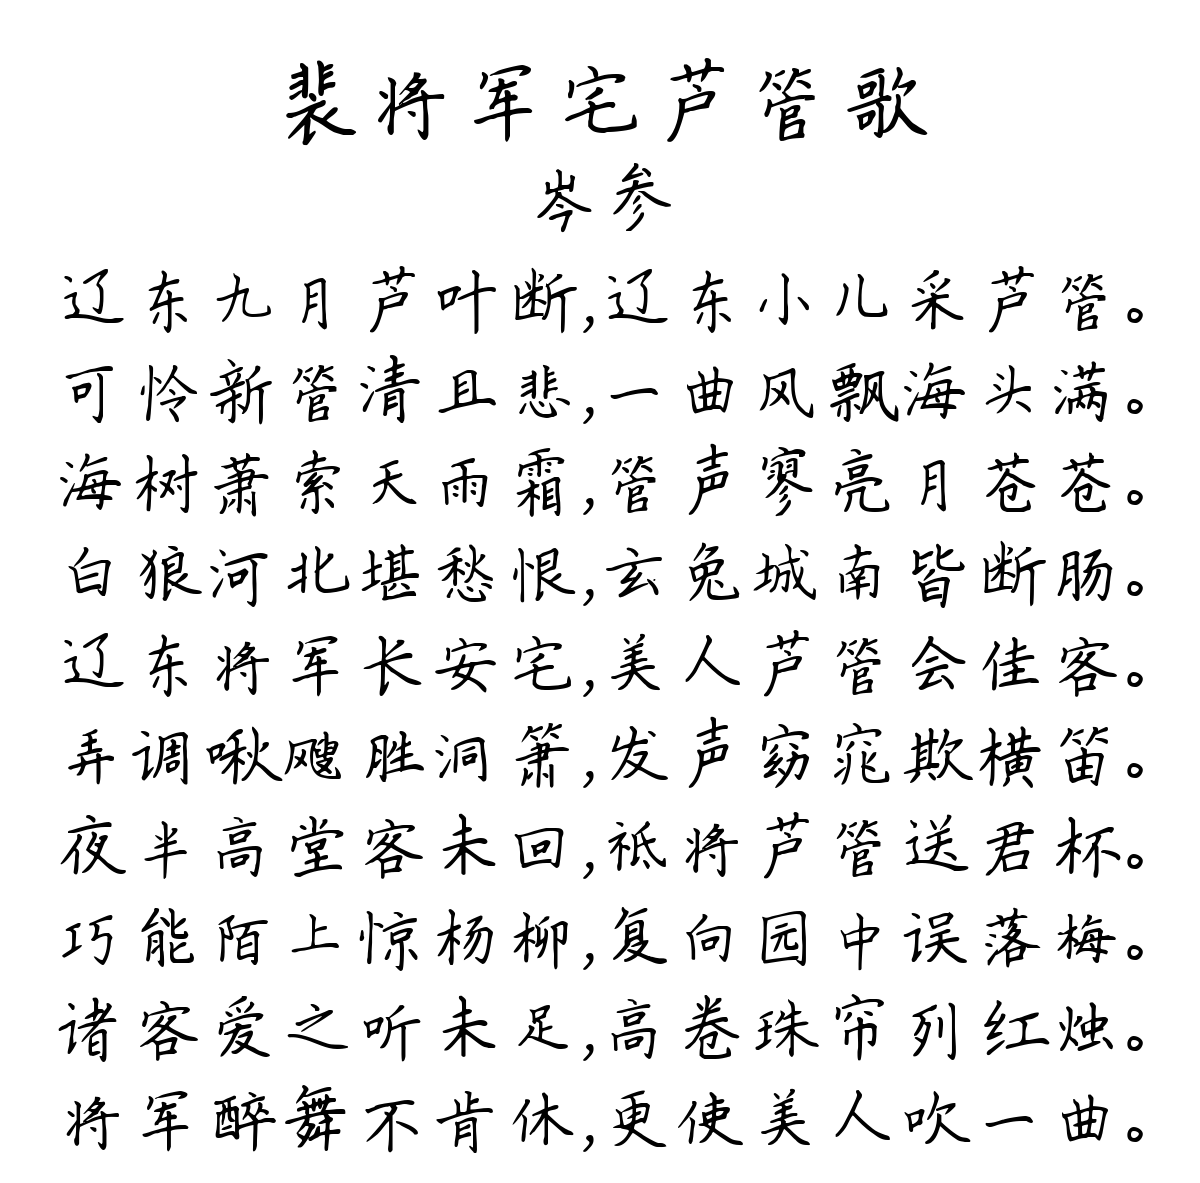 裴将军宅芦管歌
岑参
辽东九月芦叶断,辽东小儿采芦管。
可怜新管清且悲,一曲风飘海头满。
海树萧索天雨霜,管声寥亮月苍苍。
白狼河北堪愁恨,玄兔城南皆断肠。
辽东将军长安宅,美人芦管会佳客。
弄调啾飕胜洞箫,发声窈窕欺横笛。
夜半高堂客未回,祗将芦管送君杯。
巧能陌上惊杨柳,复向园中误落梅。
诸客爱之听未足,高卷珠帘列红烛。
将军醉舞不肯休,更使美人吹一曲。